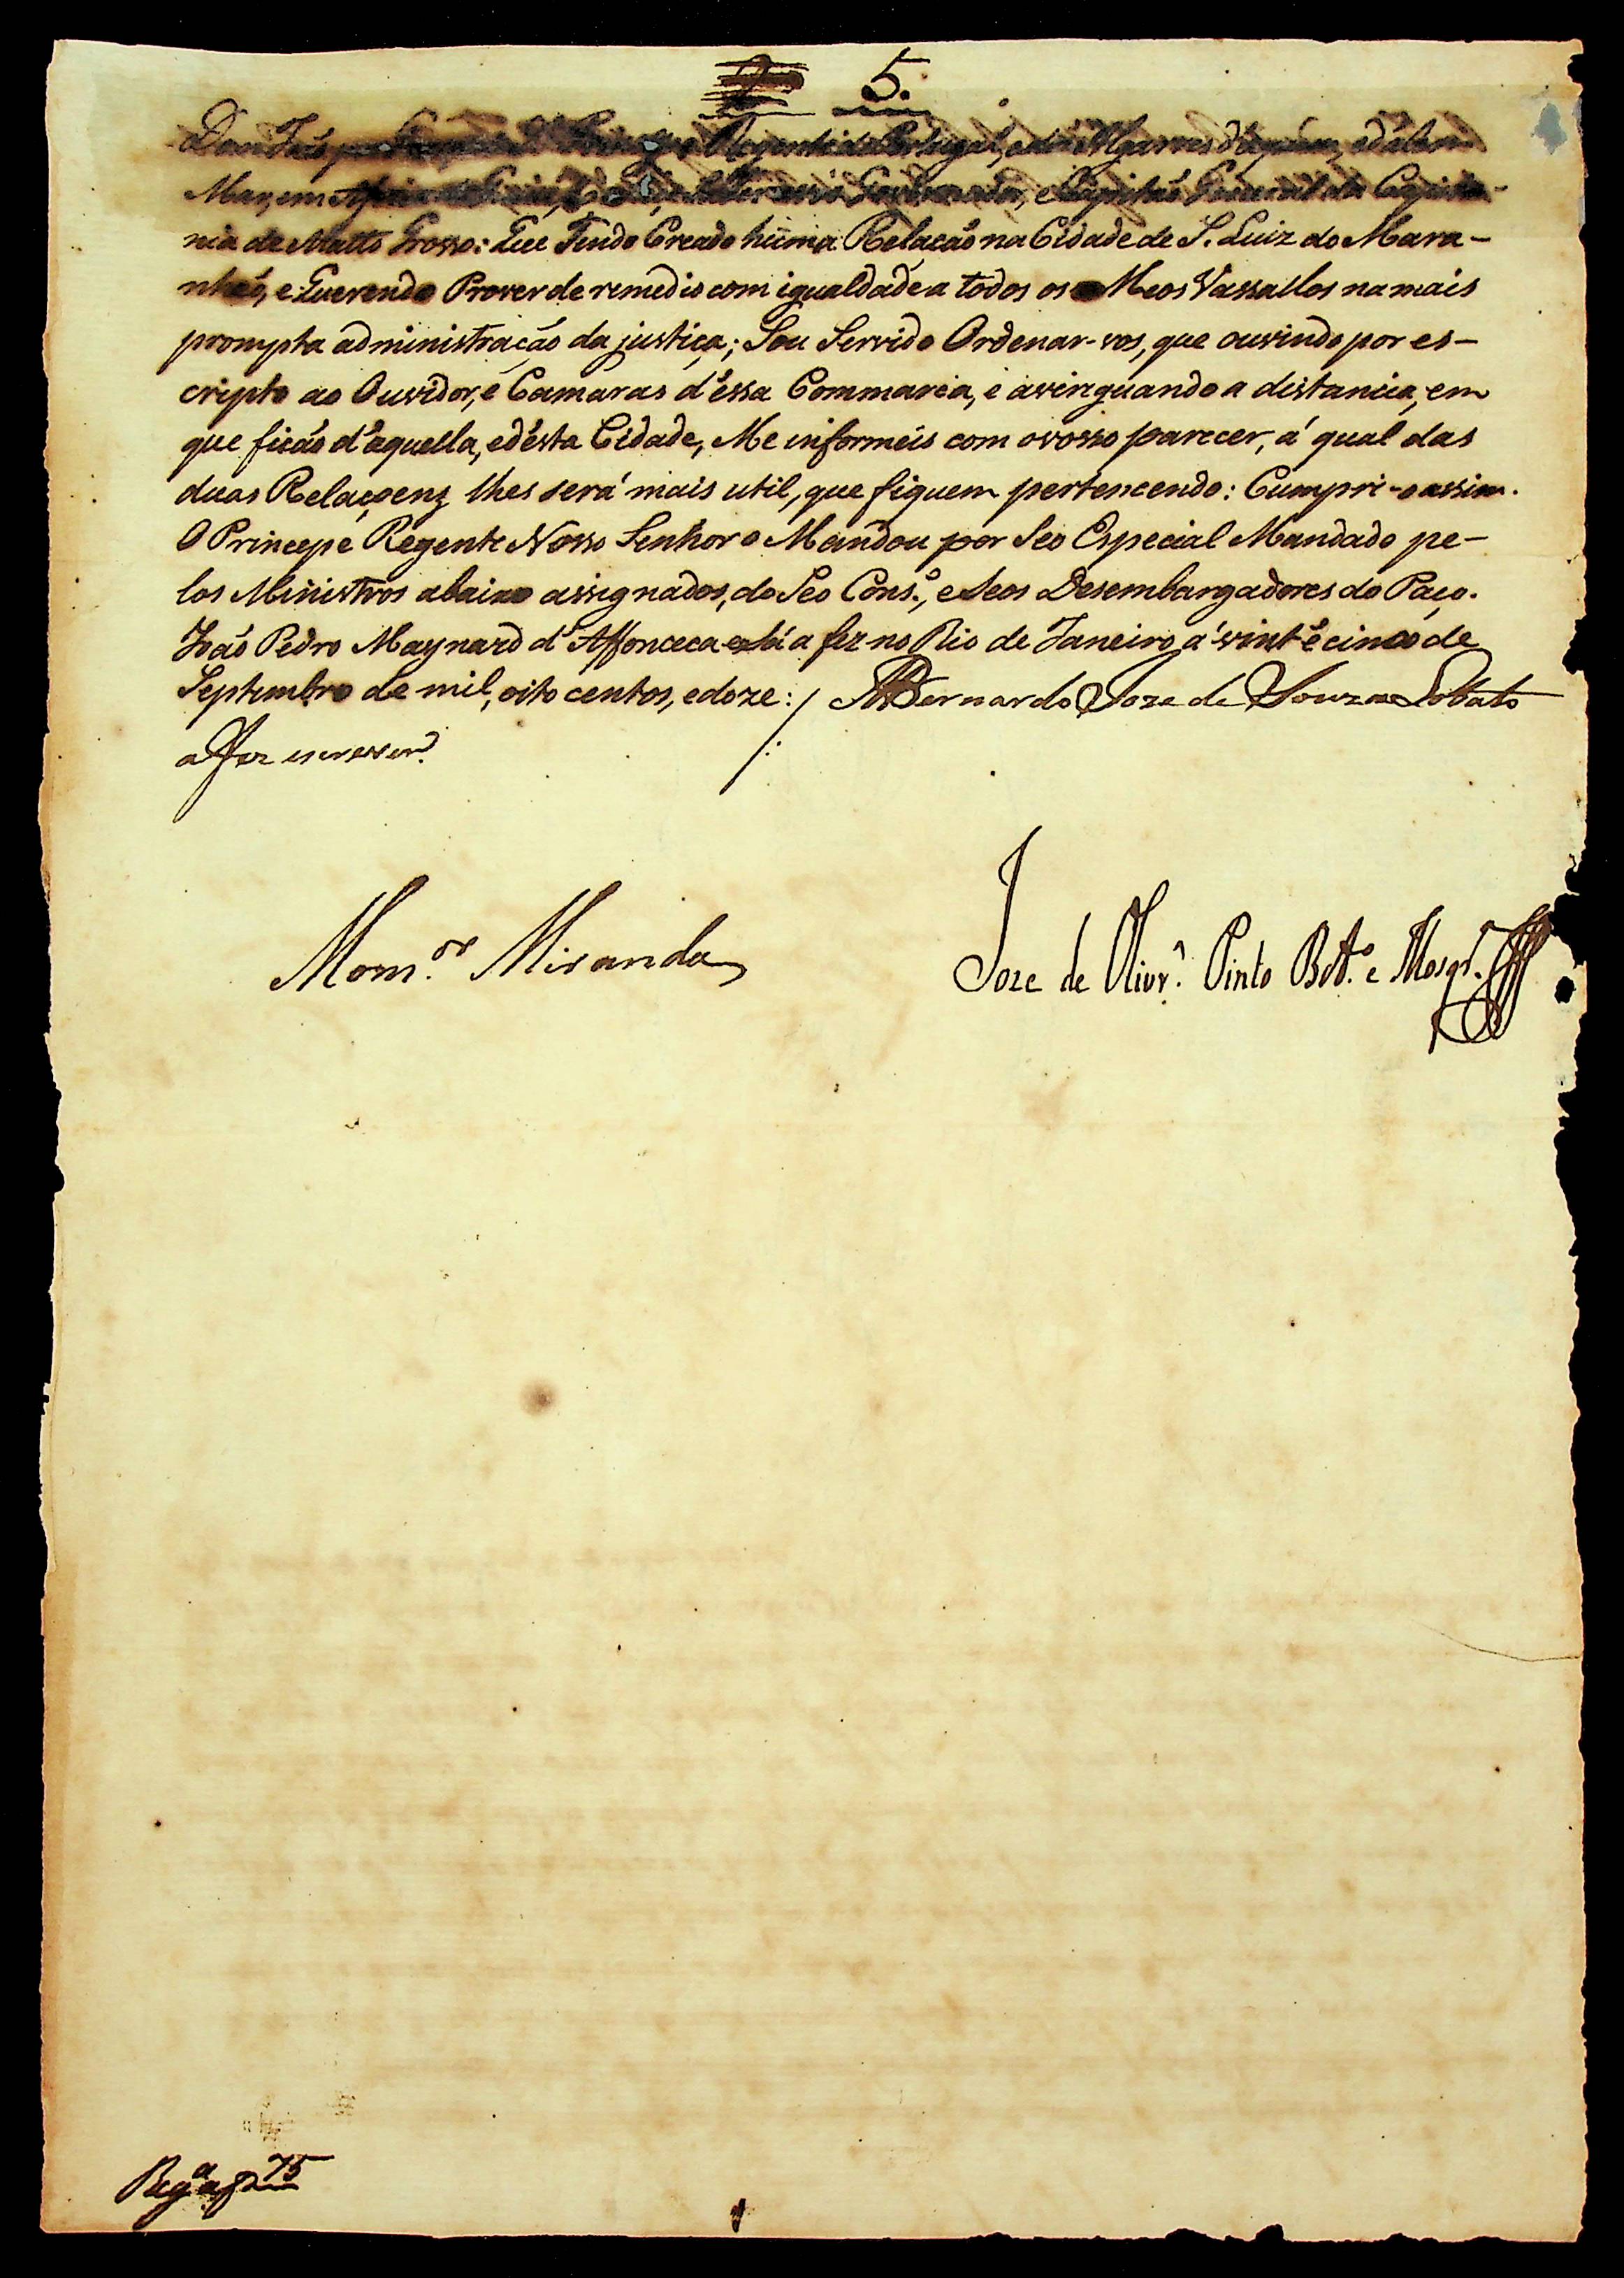 5.
Dom João Principe Regente de Portugal, e dos Algarves d'aquem, e d'alem
Mar, em Governador, e Capitão General da Capita-
nia de Matto Grosso: Que Tendo Creado huma Relacaõ na Cidade de S. Luiz do Mara-
nhaõ, e Querendo Prover de remedio com igualdade a todos os Meos Vassallos na mais
prompta administracaõ da justiça; Sou Servido Ordenar-vos, que ouvindo por es-
cripto ao Ouvidor, e Camaras d'essa Commarca, e averiguando a distancia, em
que ficaõ d'aquella, e d'esta Cidade, Me informeis com o vosso parecer, á qual das
duas Relaçoenz lhes será mais util, que fiquem pertencendo: Cumpri-o assim.
O Princepe Regente Nosso Senhor o Mandou por Seo Especial Mandado pe-
los Ministros abaixo assignados, do Seo Cons.º, e Seos Desembargadores do Paço.
Joaõ Pedro Maynard d'Affonceca e Sá a fez no Rio de Janeiro á vint'e cinco de
Septembro de mil, oito centos, e doze :/ Bernardo Joze de Souza Lobato
a fez escrever.
Mon.or Miranda
Joze de Olivr.ª Pinto Bot.º e Mosqr.ª
Reg.ª a f 75